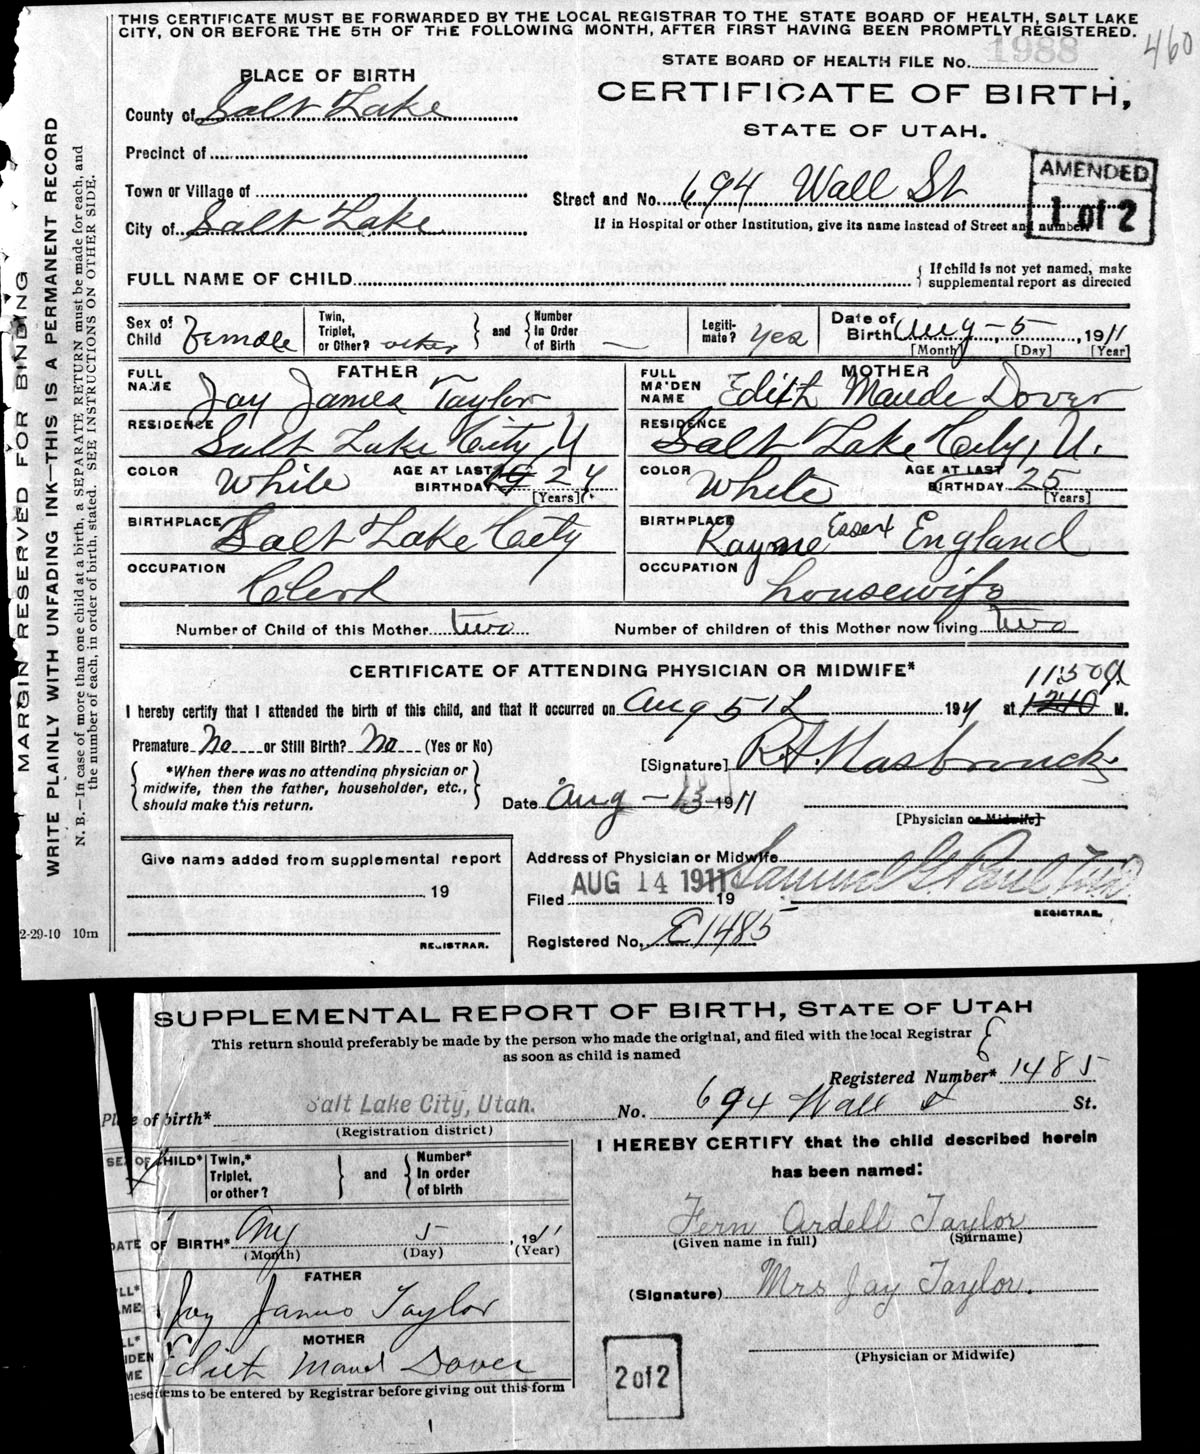 THIS CERTIFICATE MUST BE FORWARDED BY THE LOCAL REGISTRAR TO THE STATE BOARD OF HEALTH, SALT LAKE
CITY, ON OR BEFORE THE 5TH OF THE FOLLOWING MONTH, AFTER FIRST HAVING BEEN PROMPTLY REGISTERED.
460
STATE BOARD OF HEALTH FILE No. 1988
PLACE OF BIRTH
CERTIFICATE OF BIRTH,
STATE OF UTAH.
County of Salt Lake
Precinct of
Town or Village of
City of Salt Lake
Street and No. 694 Wall St
If in Hospital or other Institution, give its name Instead of Street and number
AMENDED
1 of 2
FULL NAME OF CHILD
If child is not yet named, make
supplemental report as directed
Sex of Child Female
Twin, Triplet, or Other? other
and
Number In Order of Birth —
Legiti-mate? Yes
Date of Birth Aug - 5, 1911
[Month] [Day] [Year]
FATHER
FULL NAME Jay James Taylor
RESIDENCE Salt Lake City, U
COLOR White
AGE AT LAST BIRTHDAY 24
[Years]
BIRTHPLACE Salt Lake City
OCCUPATION Clerk
MOTHER
FULL MAIDEN NAME Edith Maude Dover
RESIDENCE Salt Lake City, U.
COLOR White
AGE AT LAST BIRTHDAY 25
[Years]
BIRTHPLACE Rayne Essex England
OCCUPATION housewife
Number of Child of this Mother two
Number of children of this Mother now living two
CERTIFICATE OF ATTENDING PHYSICIAN OR MIDWIFE*
I hereby certify that I attended the birth of this child, and that it occurred on Aug 5th 1911 at 1210 M.
1150
Premature No or Still Birth? No (Yes or No)
*When there was no attending physician or
midwife, then the father, householder, etc.,
should make this return.
[Signature] R.A. Hasbrouck
Date Aug - 13 1911
[Physician or Midwife]
Give name added from supplemental report
19
REGISTRAR.
Address of Physician or Midwife
Filed AUG 14 1911 19
Samuel G. Paul
REGISTRAR.
Registered No. E1485
2-29-10 10m
MARGIN RESERVED FOR BINDING
WRITE PLAINLY WITH UNFADING INK—THIS IS A PERMANENT RECORD
N. B.—In case of more than one child at a birth, a SEPARATE RETURN must be made for each, and
the number of each, in order of birth, stated. SEE INSTRUCTIONS ON OTHER SIDE.
SUPPLEMENTAL REPORT OF BIRTH, STATE OF UTAH
This return should preferably be made by the person who made the original, and filed with the local Registrar
as soon as child is named
E
Registered Number* 1485
Place of birth* Salt Lake City, Utah.
(Registration district)
No. 694 Wall St.
SEX OF CHILD*
Twin,* Triplet, or other?
and
Number* In order of birth
I HEREBY CERTIFY that the child described herein
has been named:
DATE OF BIRTH* Aug 5, 1911
(Month) (Day) (Year)
Fern Ardell Taylor
(Given name in full) (Surname)
FATHER
Jay James Taylor
(Signature) Mrs Jay Taylor.
MOTHER
Edith Maud Dover
(Physician or Midwife)
2 of 2
items to be entered by Registrar before giving out this form